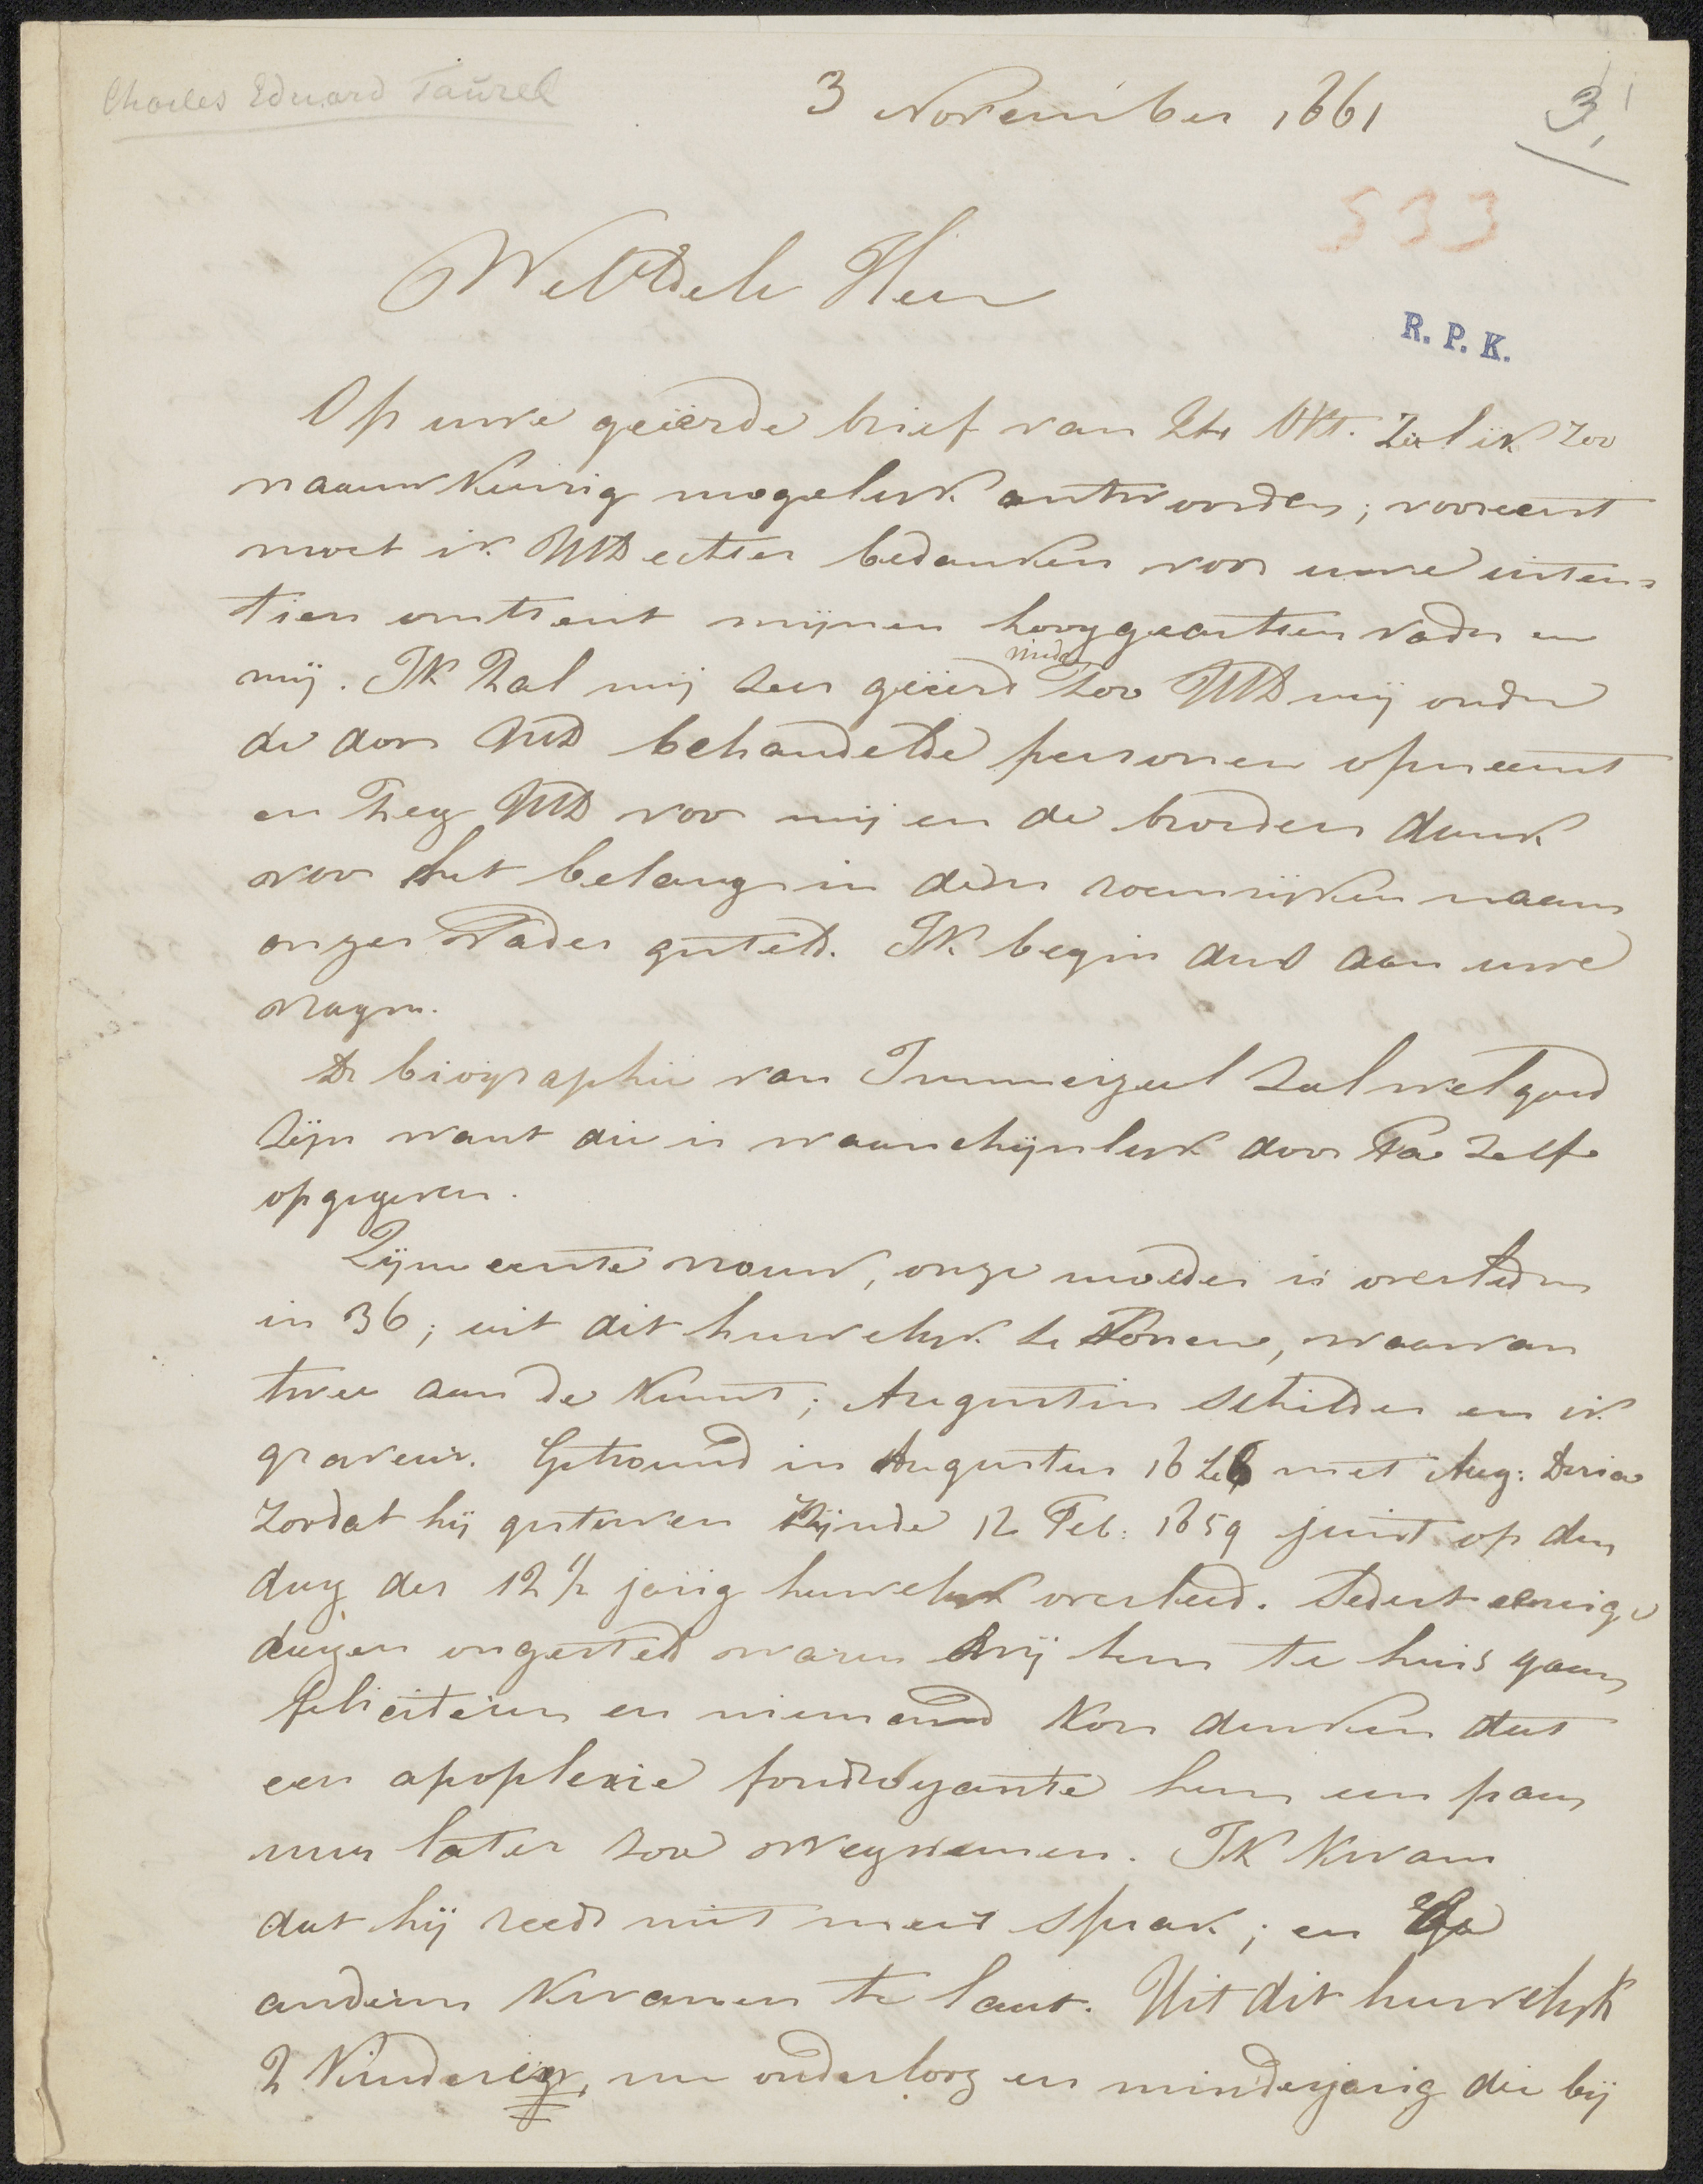 Charles Eduard Taurel
3 November 1861
3,
533
WelEdele Heer
R. P. K.
Op uwe geëerde brief van 24 Okt. Zal ik zoo
naauwkeurig mogelijk antwoorden; vooreerst
moet ik UED echter bedanken voor uwe inten-
tien omtrent mijnen hooggeachten vader en
mij. Ik Zal mij zeer geëerd vinden zoo UED mij onder
de door UED behandelde personen opneemt
en Zeg UED voor mij en de broeders dank
voor het belang in den roemrijken naam
onzer Vader gesteld. Ik begin dus aan uwe
vragen.
De biographie van Immerzeel zal wel goed
zijn want die is waarschijnlijk door Pa zelf
opgegeven.
Zijne eerste vrouw, onze moeder is overleden
in 36; uit dit huwelijk 4 Zonen, waarvan
twee aan de Kunst; Augustin schilder en ik
graveur. Getrouwd in Augustus 1846 met Aug:
zoodat hij gestorven zijnde 12 Feb: 1859 juist op den
dag der 12½ jarig huwelijk overleed. Sedert eenige
dagen ongesteld waren wij hem te huis gaan
feliciteren en niemand Kon denken dat
een apoplexie foudroyante hem een paar
uur later zou wegnemen. Ik Kwam
dat hij reeds niet meer sprak; en de
anderen Kwamen te laat. Uit dit huwelijk
2 Kinderen, nu ouderloos en minderjarig die bij